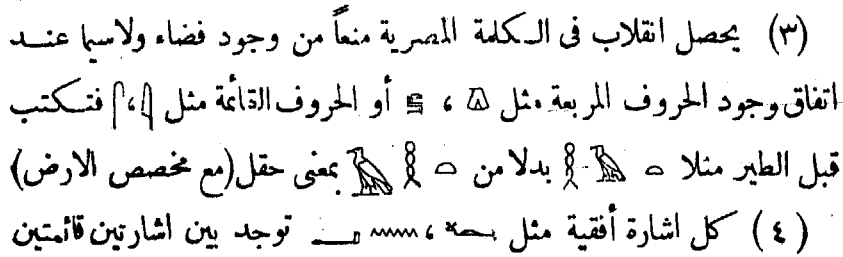 (٣) يحصل انقلاب فى الكلمة المصرية منعاً من وجود فضاء ولاسيما عند
اتفاق وجود الحروف المربعة مثل 𓎼 ، أو الحروف القائمة مثل 𓇋 ، 𓋴 فتكتب
قبل الطير مثلا 𓏏 𓄿 𓎛 بدلا من 𓏏 𓎛 𓄿 بمعنى حقل (مع مخصص الارض)
(٤) كل اشارة أفقية مثل 𓆑 ، 𓈖 𓂝 توجد بين اشارتين قائمتين